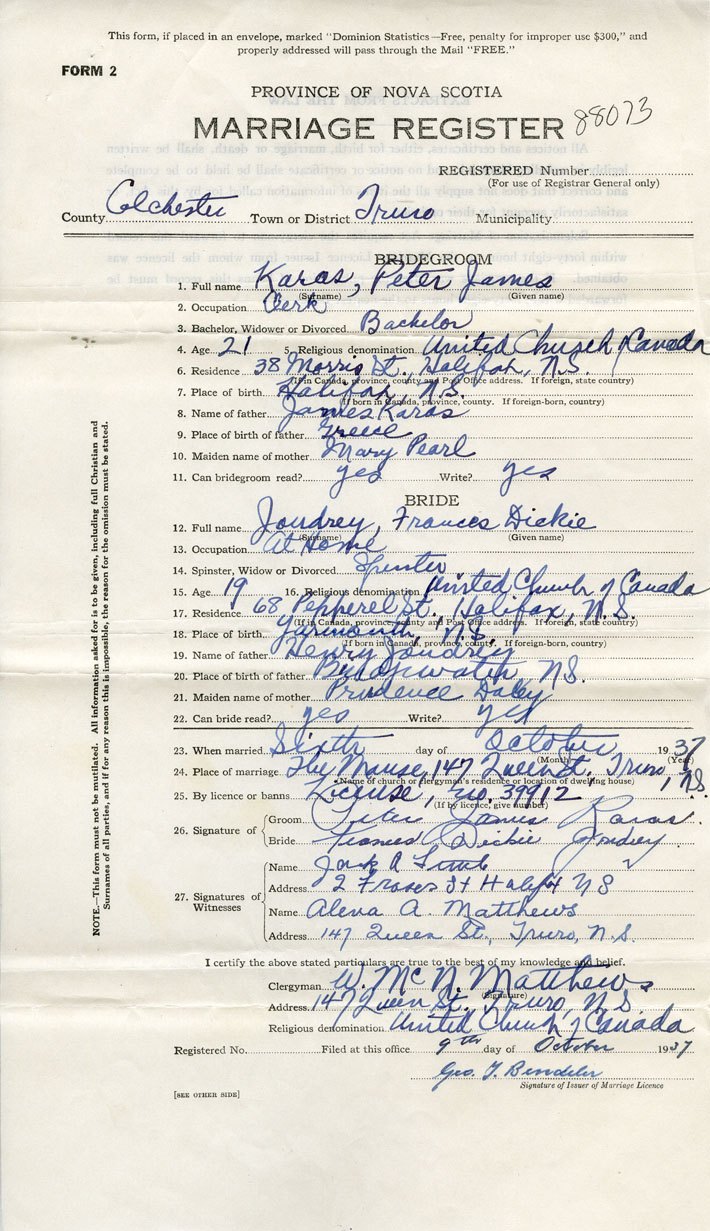 This form, if placed in an envelope, marked "Dominion Statistics—Free, penalty for improper use $300," and
properly addressed will pass through the Mail "FREE."
FORM 2
PROVINCE OF NOVA SCOTIA
MARRIAGE REGISTER 88073
REGISTERED Number
(For use of Registrar General only)
County Colchester Town or District Truro Municipality
BRIDEGROOM
1. Full name Karas, Peter James
(Surname) (Given name)
2. Occupation Clerk
3. Bachelor, Widower or Divorced Bachelor
4. Age 21 5. Religious denomination United Church of Canada
6. Residence 38 Morris St., Halifax, N.S.
(If in Canada, province, county and Post Office address. If foreign, state country)
7. Place of birth Halifax, N.S.
(If born in Canada, province, county. If foreign-born, country)
8. Name of father James Karas
9. Place of birth of father Greece
10. Maiden name of mother Mary Pearl
11. Can bridegroom read? yes Write? yes
BRIDE
12. Full name Joudrey, Frances Dickie
(Surname) (Given name)
13. Occupation At Home
14. Spinster, Widow or Divorced Spinster
15. Age 19 16. Religious denomination United Church of Canada
17. Residence 68 Pepperel St., Halifax, N.S.
(If in Canada, province, county and Post Office address. If foreign, state country)
18. Place of birth Yarmouth, N.S.
(If born in Canada, province, county. If foreign-born, country)
19. Name of father Henry Joudrey
20. Place of birth of father Bridgewater N.S.
21. Maiden name of mother Prudence Daley
22. Can bride read? yes Write? yes
23. When married Sixth day of October 1937
(Month) (Year)
24. Place of marriage The Manse, 147 Queen St., Truro, N.S.
(Name of church or clergyman's residence or location of dwelling house)
25. By licence or banns License, No. 39912
(If by licence, give number)
26. Signature of Groom Peter James Karas.
Bride Frances Dickie Joudrey
27. Signatures of Witnesses
Name Jack A
Address 2 Fraser St Halifax N S
Name Alena A. Matthews
Address 147 Queen St., Truro, N.S.
I certify the above stated particulars are true to the best of my knowledge and belief.
Clergyman W. McN. Matthews
(Signature)
Address 147 Queen St. Truro, N.S.
Religious denomination United Church of Canada
Registered No. Filed at this office 9th day of October 1937
Geo.
Signature of Issuer of Marriage Licence
[SEE OTHER SIDE]
NOTE.—This form must not be mutilated. All information asked for is to be given, including full Christian and
Surnames of all parties, and if for any reason this is impossible, the reason for the omission must be stated.